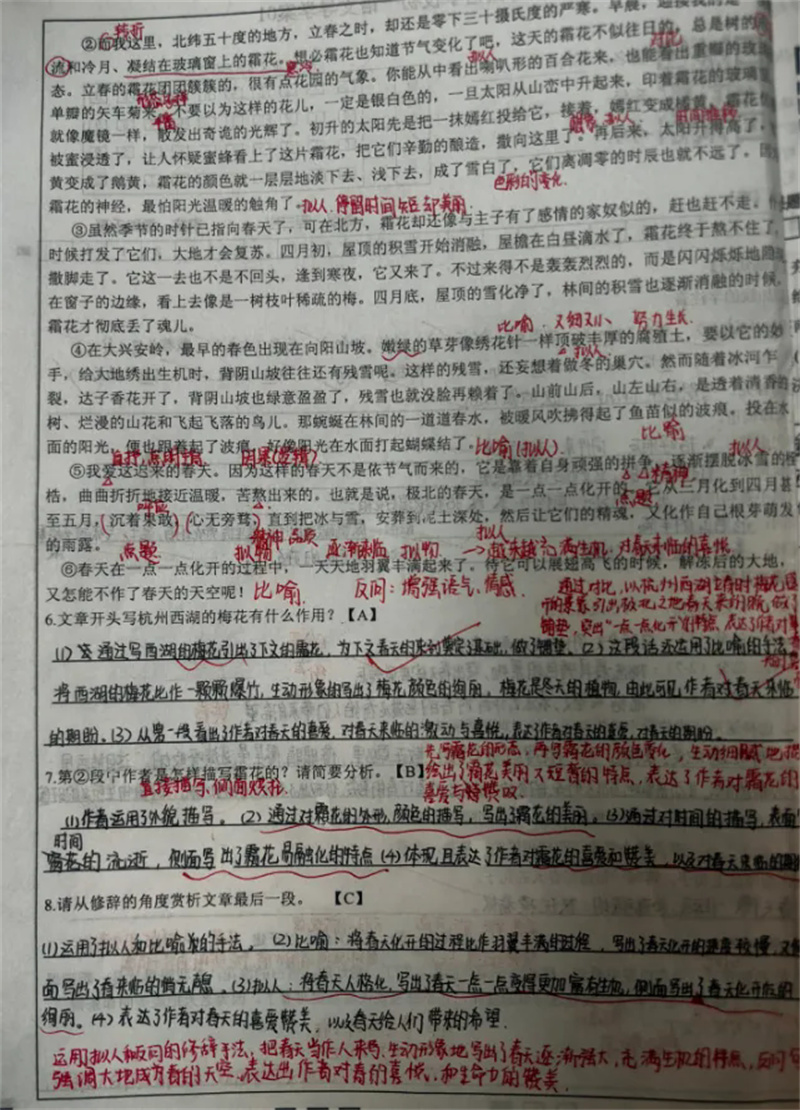 转折
②而我这里，北纬五十度的地方，立春之时，却还是零下三十摄氏度的严寒。早晨，迎接我的是
流和冷月、凝结在玻璃窗上的霜花。想必霜花也知道节气变化了吧，这天的霜花不似往日的，总是树的
态。立春的霜花团团簇簇的，很有点花园的气象。你能从中看出喇叭形的百合花来，也能看出重瓣的玫瑰
单瓣的矢车菊来。不要以为这样的花儿，一定是银白色的，一旦太阳从山峦中升起来，印着霜花的玻璃窗
就像魔镜一样，散发出奇诡的光辉了。初升的太阳先是把一抹嫣红投给它，接着，嫣红变成橘黄，霜花
被蜜浸透了，让人怀疑蜜蜂看上了这片霜花，把它们辛勤的酿造，撒向这里了。再后来，太阳升得高了，
黄变成了鹅黄，霜花的颜色就一层层地淡下去、浅下去，成了雪白了，它们离凋零的时辰也就不远了。因
色彩的变化
霜花的神经，最怕阳光温暖的触角了。拟人 停留时间短却美丽
③虽然季节的时针已指向春天了，可在北方，霜花却还像与主子有了感情的家奴似的，赶也赶不走。
时候打发了它们，大地才会复苏。四月初，屋顶的积雪开始消融，屋檐在白昼滴水了，霜花终于熬不住了，
撒脚走了。它这一去也不是不回头，逢到寒夜，它又来了。不过来得不是轰轰烈烈的，而是闪闪烁烁地隐
在窗子的边缘，看上去像是一树枝叶稀疏的梅。四月底，屋顶的雪化净了，林间的积雪也逐渐消融的时候，
霜花才彻底丢了魂儿。
比喻：又细又小 努力生长
④在大兴安岭，最早的春色出现在向阳山坡。嫩绿的草芽像绣花针一样顶破丰厚的腐殖土，要以它的妙
拟人
手，给大地绣出生机时，背阴山坡往往还有残雪呢。这样的残雪，还妄想着做冬的巢穴。然而随着冰河乍
裂，达子香花开了，背阴山坡也绿意盈盈了，残雪也就没脸再赖着了。山前山后，山左山右，是透着清香的
树、烂漫的山花和飞起飞落的鸟儿。那蜿蜒在林间的一道道春水，被暖风吹拂得起了鱼苗似的波痕。投在水
比喻
面的阳光，便也跟着起了波痕，好像阳光在水面打起蝴蝶结了。比喻（拟人） 拟人
⑤我爱这迟来的春天。因为这样的春天不是依节气而来的，它是靠着自身顽强的拼争，逐渐摆脱冰雪的桎
梏，曲曲折折地接近温暖，苦熬出来的。也就是说，极北的春天，是一点一点化开的。它从三月化到四月甚
点题
至五月，沉着果敢，心无旁骛，直到把冰与雪，安葬到泥土深处，然后让它们的精魂，又化作自己根芽萌发
的雨露。
点题 拟物 逐渐来临 拟物 →越来越充满生机，对春来临的喜悦
⑥春天在一点一点化开的过程中，一天天地羽翼丰满起来了。待它可以展翅高飞的时候，解冻后的大地，
又怎能不作了春天的天空呢！比喻 反问：增强语气、情感
6.文章开头写杭州西湖的梅花有什么作用？【A】
通过对比，以杭州西湖立春时梅花
突出“一点一点化开”的特点，表达了作者对
(1) 通过写西湖的梅花引出了下文的霜花，为下文春天的来到奠定了基础，做了铺垫。(2) 这段话还运用了比喻的手法，
将西湖的梅花比作一颗颗爆竹，生动形象的写出了梅花颜色的绚丽，梅花是冬天的植物，由此可见作者对春天来临
的期盼。(3) 从第一段看出作者对春天的喜爱，对春天来临的激动与喜悦，表达了作者对春天的喜爱，对春天的期盼。
7.第②段中作者是怎样描写霜花的？请简要分析。【B】
先写霜花的形态，再写霜花的颜色变化，生动细腻地描
绘出了霜花美丽又短暂的特点，表达了作者对霜花的
喜爱与赞叹
直接描写、侧面烘托
(1)作者运用了外貌描写。(2) 通过对霜花的外形，颜色的描写，写出了霜花的美丽。(3)通过对时间的描写，表面
时间
的流逝，侧面写出了霜花易融化的特点 (4)体现且表达了作者对霜花的喜爱和赞美，以及对春天来临的期
8.请从修辞的角度赏析文章最后一段。【C】
(1)运用了拟人和比喻的手法。(2)比喻：将春天化开的过程比作羽翼丰满的过程，写出了春天化开的速度较慢，又侧
面写出了春来临的悄无声息。(3)拟人：将春天人格化，写出了春天一点一点变得更加富有生机，侧面写出了春天化开后的
绚丽。(4)表达了作者对春天的喜爱赞美，以及春天给人们带来的希望.
运用拟人和反问的修辞手法，把春天当作人来写，生动形象地写出了春天逐渐强大，充满生机的特点，反问句
强调大地成为春的天空，表达出作者对春的喜悦，和生命力的赞美.